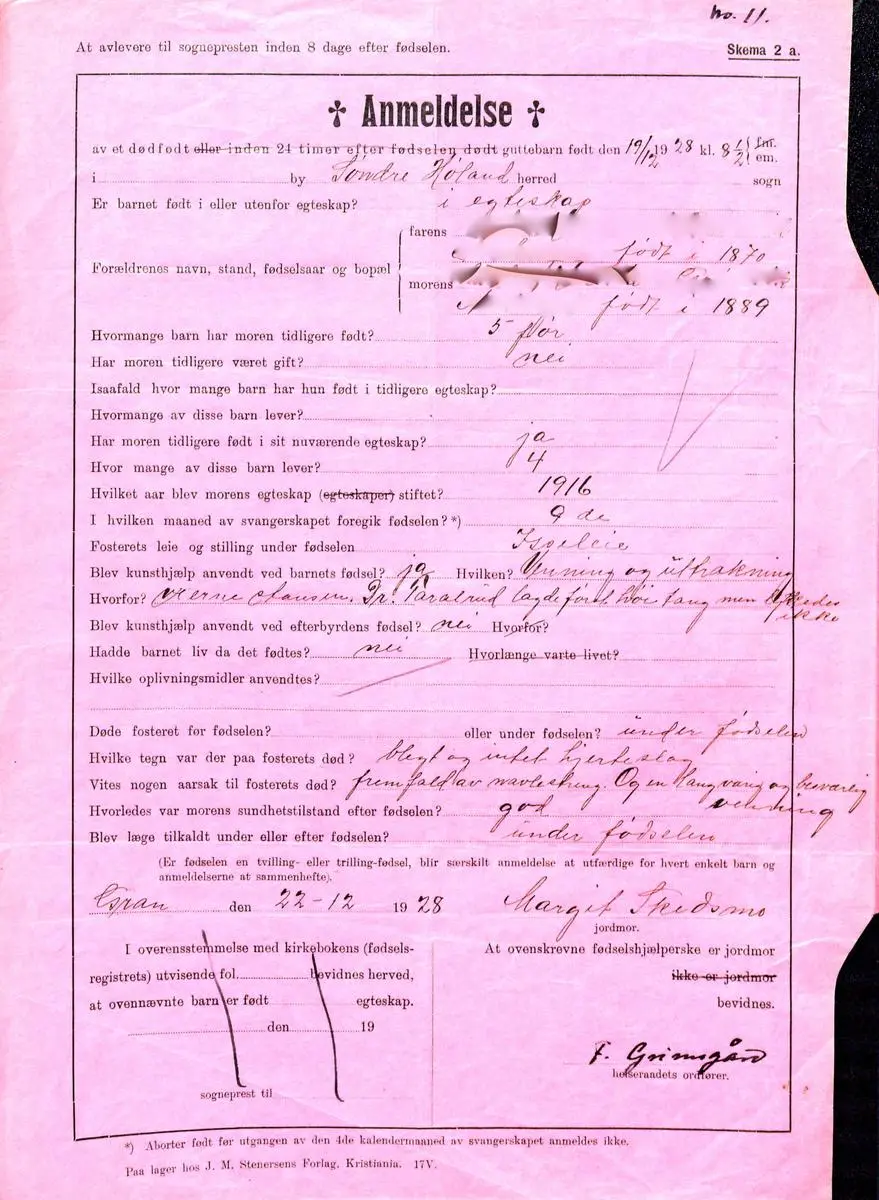 no. 11.
At avlevere til sognepresten inden 8 dage efter fødselen.
Skema 2 a.
✝ Anmeldelse ✝
av et dødfødt eller inden 24 timer efter fødselen dødt guttebarn født den 19/12 1928 kl. 8 1/2 fm. em.
i by Søndre Høland herred sogn
Er barnet født i eller utenfor egteskap? i egteskap
farens
født i 1870
Forældrenes navn, stand, fødselsaar og bopæl
morens
født i 1889
Hvormange barn har moren tidligere født? 5 før
Har moren tidligere været gift? nei
Isaafald hvor mange barn har hun født i tidligere egteskap?
Hvormange av disse barn lever?
Har moren tidligere født i sit nuværende egteskap? ja
Hvor mange av disse barn lever? 4
Hvilket aar blev morens egteskap (egteskaper) stiftet? 1916
I hvilken maaned av svangerskapet foregik fødselen? *) 9 de
Fosterets leie og stilling under fødselen Isseleie
Blev kunsthjælp anvendt ved barnets fødsel? ja Hvilken? Vening og uttrakning
Hvorfor? Dr. lagde først høi tang men lykkedes
ikke
Blev kunsthjælp anvendt ved efterbyrdens fødsel? nei Hvorfor?
Hadde barnet liv da det fødtes? nei Hvorlænge varte livet?
Hvilke oplivningsmidler anvendtes?
Døde fosteret før fødselen? eller under fødselen? under fødselen
Hvilke tegn var der paa fosterets død? blegt og intet hjerteslag
Vites nogen aarsak til fosterets død? fremfald av navlestreng. Og en langvarig og besværlig
vening
Hvorledes var morens sundhetstilstand efter fødselen? god
Blev læge tilkaldt under eller efter fødselen? under fødselen
(Er fødselen en tvilling- eller trilling-fødsel, blir særskilt anmeldelse at utfærdige for hvert enkelt barn og
anmeldelserne at sammenhefte).
Gran den 22-12 1928 Margit Skedsmo
jordmor.
I overensstemmelse med kirkebokens (fødsels-
registrets) utvisende fol. bevidnes herved,
at ovennævnte barn er født egteskap.
den 19
sogneprest til
At ovenskrevne fødselshjælperske er jordmor
ikke er jordmor
bevidnes.
F. Grimsgård
helseraadets ordfører.
*) Aborter født før utgangen av den 4de kalendermaaned av svangerskapet anmeldes ikke.
Paa lager hos J. M. Stenersens Forlag, Kristiania. 17V.